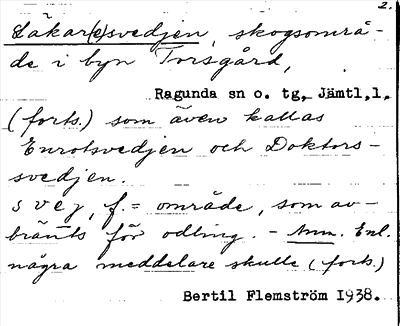 2.
Läkar(e)svedjen, skogsområ-
de i byn Torsgård,
Ragunda sn o. tg, Jämtl,l,
(forts.) som även kallas
Enrotsvedjen och Doktors-
svedjen.
svej, f. = område, som av-
bränts för odling. - Anm. Enl.
några meddelare skulle (forts.)
Bertil Flemström 1938.